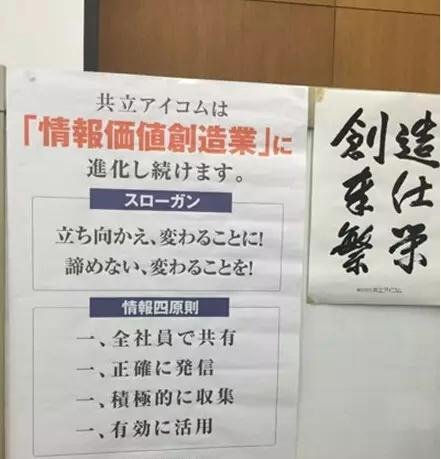 共立アイコムは
「情報価値創造業」に
進化し続けます。
スローガン
立ち向かえ、変わることに!
諦めない、変わることを!
情報四原則
一、全社員で共有
一、正確に発信
一、積極的に収集
一、有効に活用
創造
奉仕
繁栄
株式会社共立アイコム